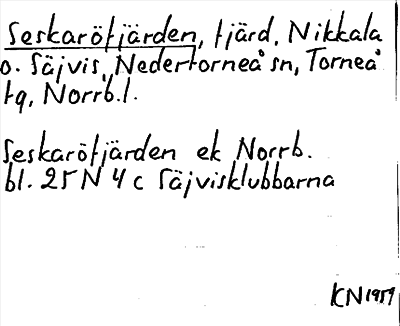 Seskaröfjärden, fjärd, Nikkala
o. Säjvis, Nedertorneå sn, Torneå
tg, Norrb. l.
Seskaröfjärden ek Norrb.
bl. 25 N 4 c Säjvisklubbarna
KN 1959